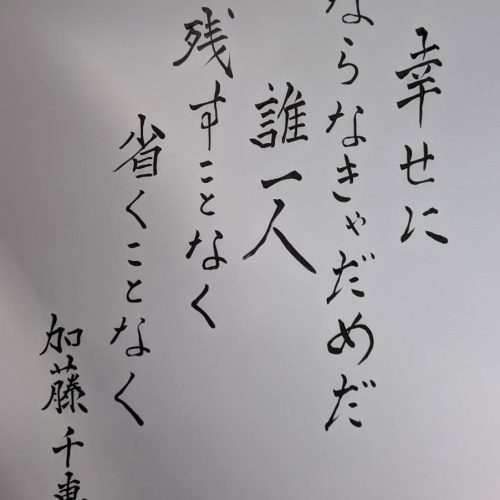 幸せに
ならなきゃだめだ
誰一人
残すことなく
省くことなく
加藤千恵